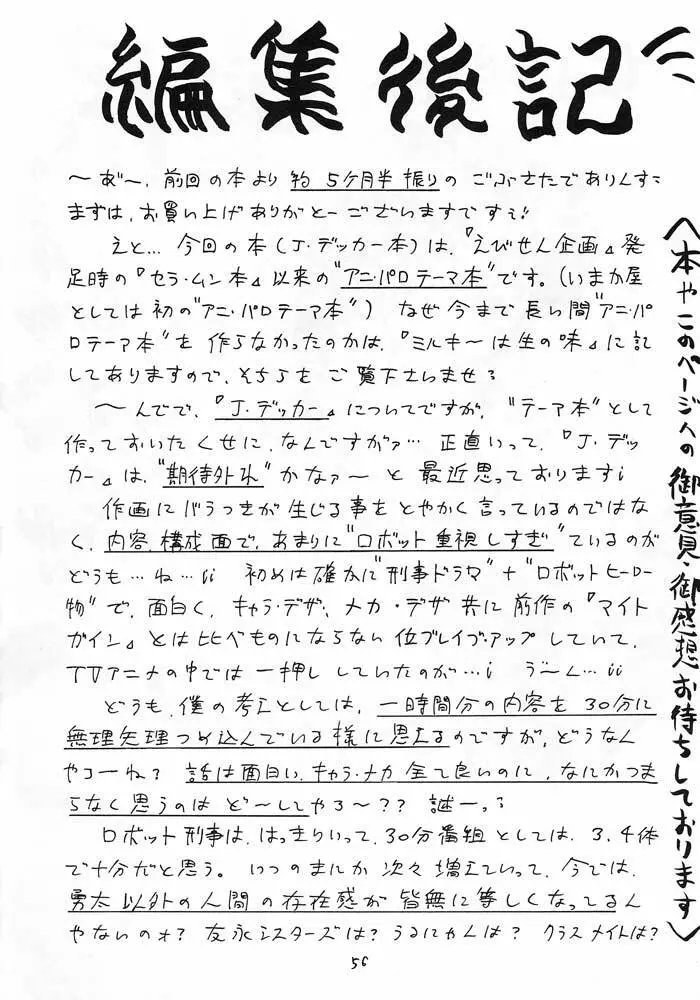 編集後記
〜あ゛〜、前回の本より 約 5ケ月半振りの ごぶさたでありんす
まずは、お買い上げ ありがとーございますですす
えと… 今回の本(J・デッカー本)は、『えびせん企画』発
足時の『セラ・ムン本』以来の"アニ・パロテーマ本"です。(いまか屋
としては初の"アニ・パロテーマ本") なぜ今まで長い間"アニ・パ
ロテーマ本"を 作らなかったのかは、『ミルキ〜は生の味』に記
してありますので、そちらを ご覧下さいませ
〜んでで、『J・デッカー』についてですが、"テーマ本"として
作っておいたくせに、なんですがァ… 正直いって、『J・デッ
カー』は、"期待外れ"かなァ〜 と 最近思っております
作画にバラつきが生じる事をとやかく言っているのではな
く、内容、構成面で、あまりに"ロボット重視しすぎ"ているのが
どうも…ね… 初めは確かに"刑事ドラマ"+"ロボットヒーロー
物"で、面白く、キャラ・デザ、メカ・デザ 共に 前作の『マイト
ガイン』とは比べものにならない位ブレイブ・アップしていて、
TVアニメの中では 一押し していたのが… う゛〜ん…
どうも、僕の考えとしては、一時間分の内容を30分に
無理矢理つめ込んでいる様に思えるのですが、どうなん
やろーね? 話は面白い、キャラ・メカ全て良いのに、なにかつま
らなく思うのは ど〜してやろ〜?? 謎ーっ
ロボット刑事は、はっきりいって、30分番組としては、3、4体
で十分だと思う。いつのまにか次々増えていって、今では、
勇太以外の人間の存在感が皆無に等しくなってるん
やないのォ? 友永シスターズは? うるにゃんは? クラスメイトは?
56
〈本やこのページへの御意見・御感想お待ちしております〉